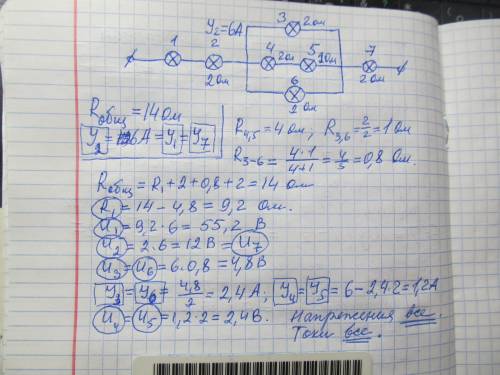 У₂=6А 3 2ом
1 2 4 2ом 5 2ом 7
2ом 6 2ом
2ом
Rобщ=14 Ом
У₂=6А=У₁=У₇
R₄,₅=4 Ом; R₃,₆=2/2=1 Ом
R₃₋₆=4·1/4+1=4/5=0,8 Ом.
Rобщ=R₁+2+0,8+2=14 Ом
R₁=14-4,8=9,2 Ом.
U₁=9,2·6=55,2 В
U₂=2·6=12В=U₇
U₃=U₆=6·0,8=4,8В
У₃=У₆=4,8/2=2,4А; У₄=У₅=6-2,4·2=1,2А
U₄=U₅=1,2·2=2,4В. Напряжения все.
Токи все.